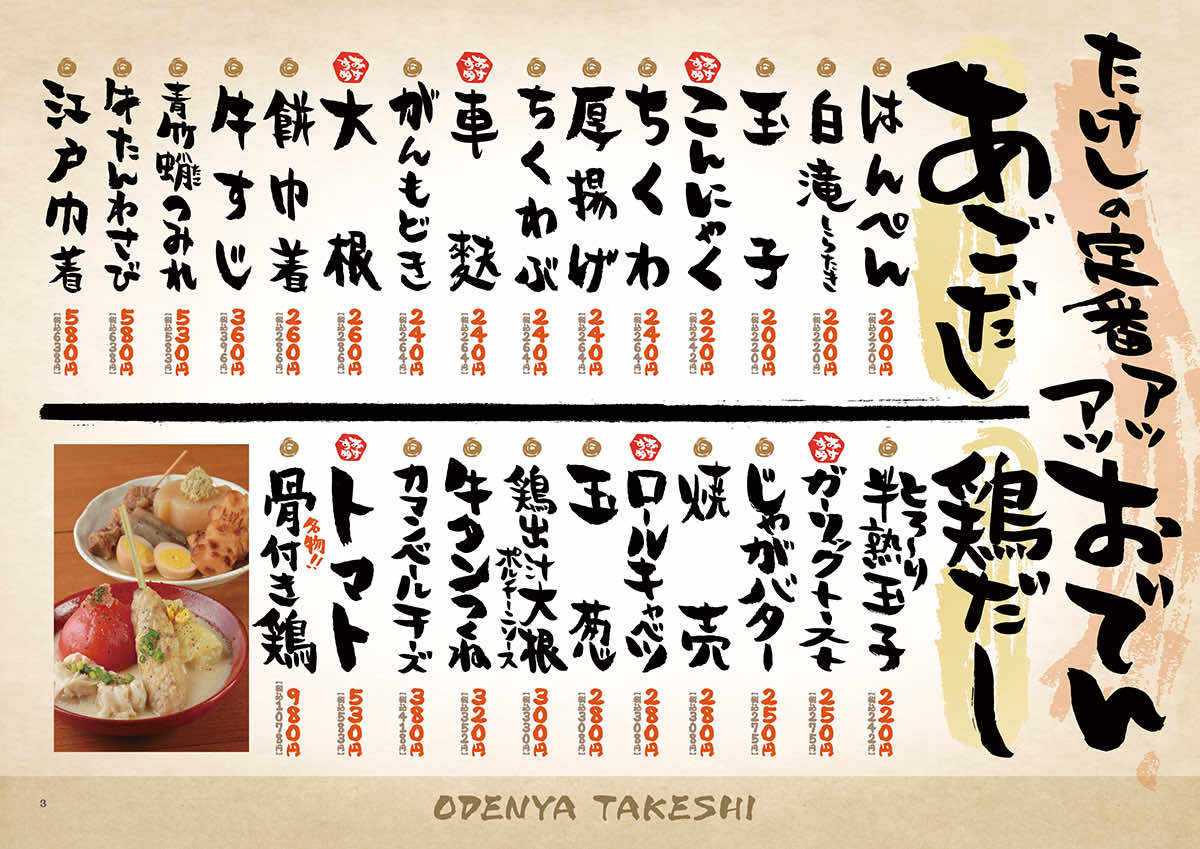 たけしの定番アツアツおでん
あごだし
はんぺん
200円
【税込220円】
白滝 しらたき
200円
【税込220円】
玉子
200円
【税込220円】
おすすめ
こんにゃく
220円
【税込242円】
ちくわ
240円
【税込264円】
厚揚げ
240円
【税込264円】
ちくわぶ
240円
【税込264円】
おすすめ
車麩
240円
【税込264円】
がんもどき
240円
【税込264円】
おすすめ
大根
260円
【税込286円】
餅巾着
260円
【税込286円】
牛すじ
360円
【税込396円】
青竹蛸つみれ
たこ
530円
【税込583円】
牛たんわさび
580円
【税込638円】
江戸巾着
580円
【税込638円】
鶏だし
とろ〜り
半熟玉子
220円
【税込242円】
おすすめ
ガーリックトースト
250円
【税込275円】
じゃがバター
250円
【税込275円】
焼売
280円
【税込308円】
おすすめ
ロールキャベツ
280円
【税込308円】
玉葱
280円
【税込308円】
鶏出汁大根
ポルチーニソース
300円
【税込330円】
牛タンつくね
320円
【税込352円】
カマンベールチーズ
380円
【税込418円】
おすすめ
トマト
530円
【税込583円】
名物!!
骨付き鶏
980円
【税込1078円】
3
ODENYA TAKESHI